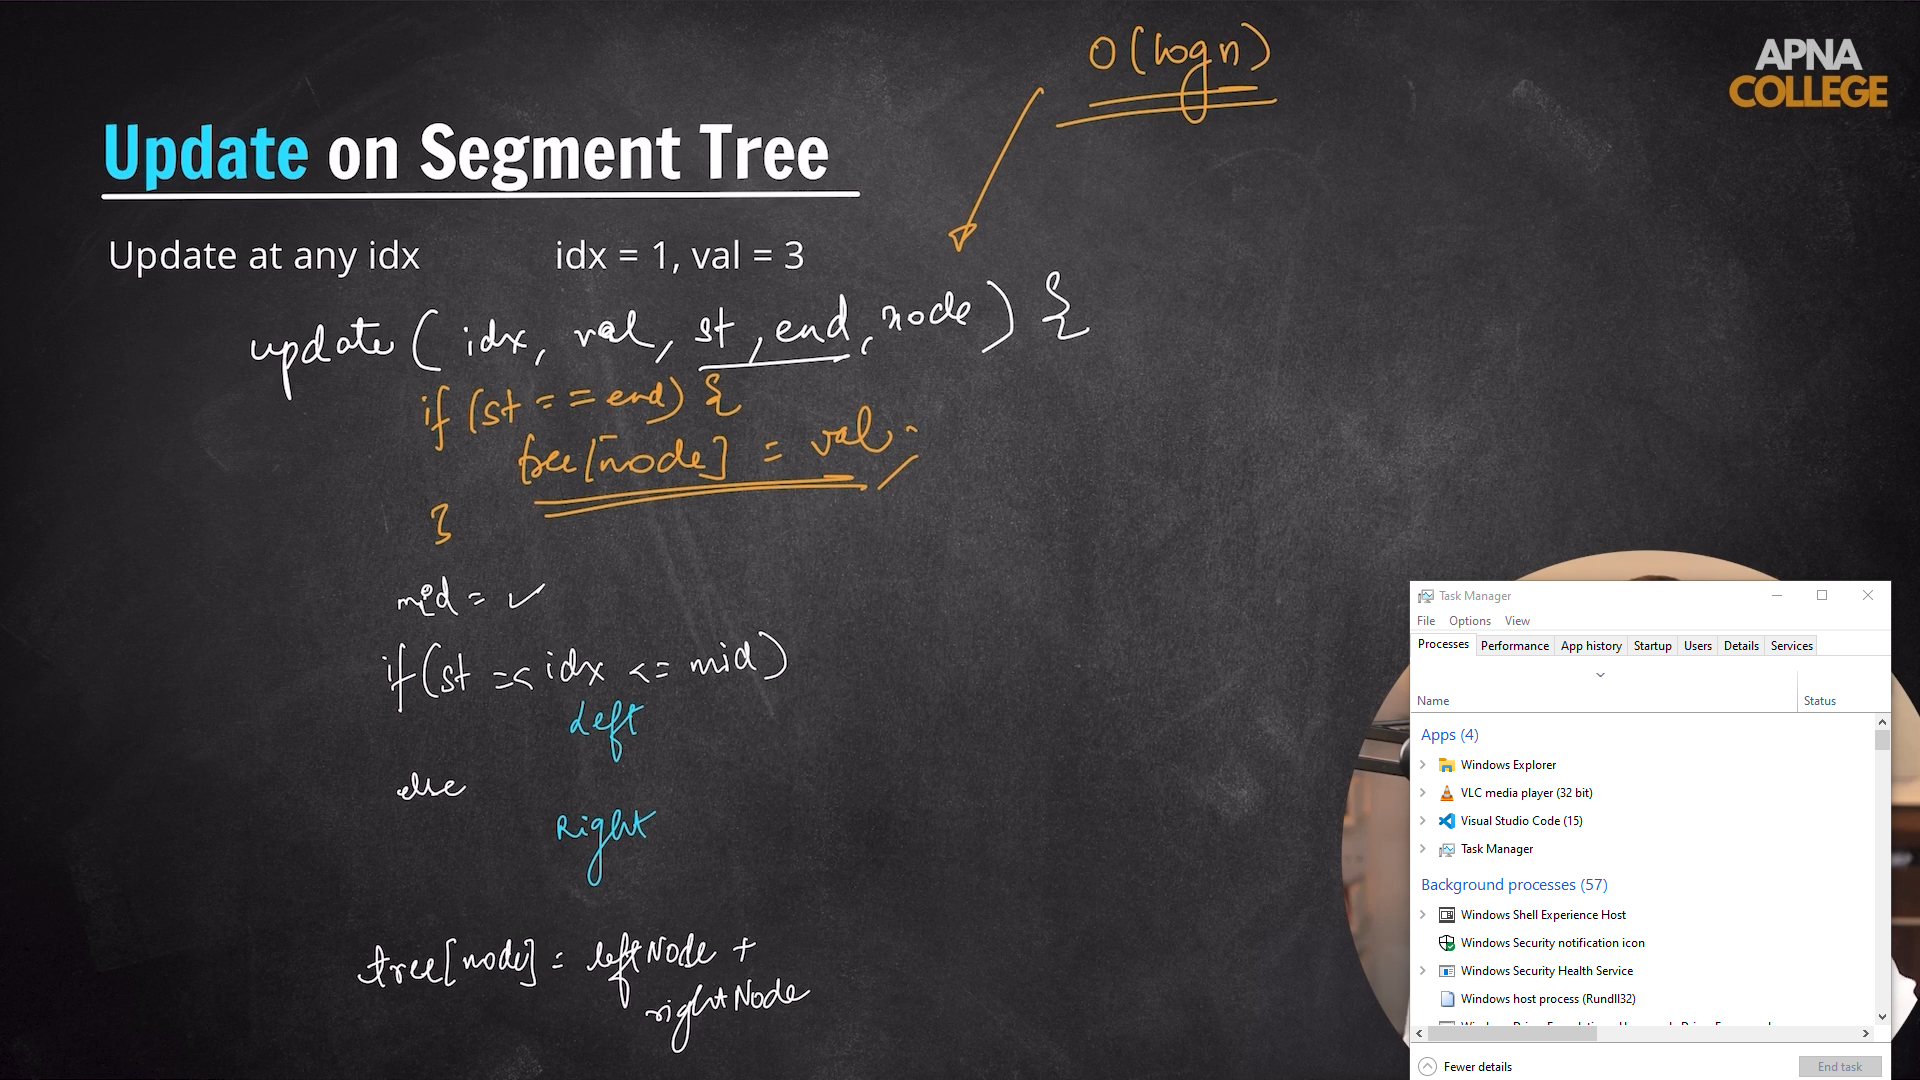 O(log n)
APNA
COLLEGE
Update on Segment Tree
Update at any idx idx = 1, val = 3
update( idx, val, st, end, node) {
if (st == end) {
tree[node] = val;
}
mid = ✓
if(st =< idx <= mid)
Left
else
Right
tree[node] = leftNode +
rightNode
Task Manager
File Options View
Processes Performance App history Startup Users Details Services
Name Status
Apps (4)
Windows Explorer
VLC media player (32 bit)
Visual Studio Code (15)
Task Manager
Background processes (57)
Windows Shell Experience Host
Windows Security notification icon
Windows Security Health Service
Windows host process (Rundll32)
Fewer details End task